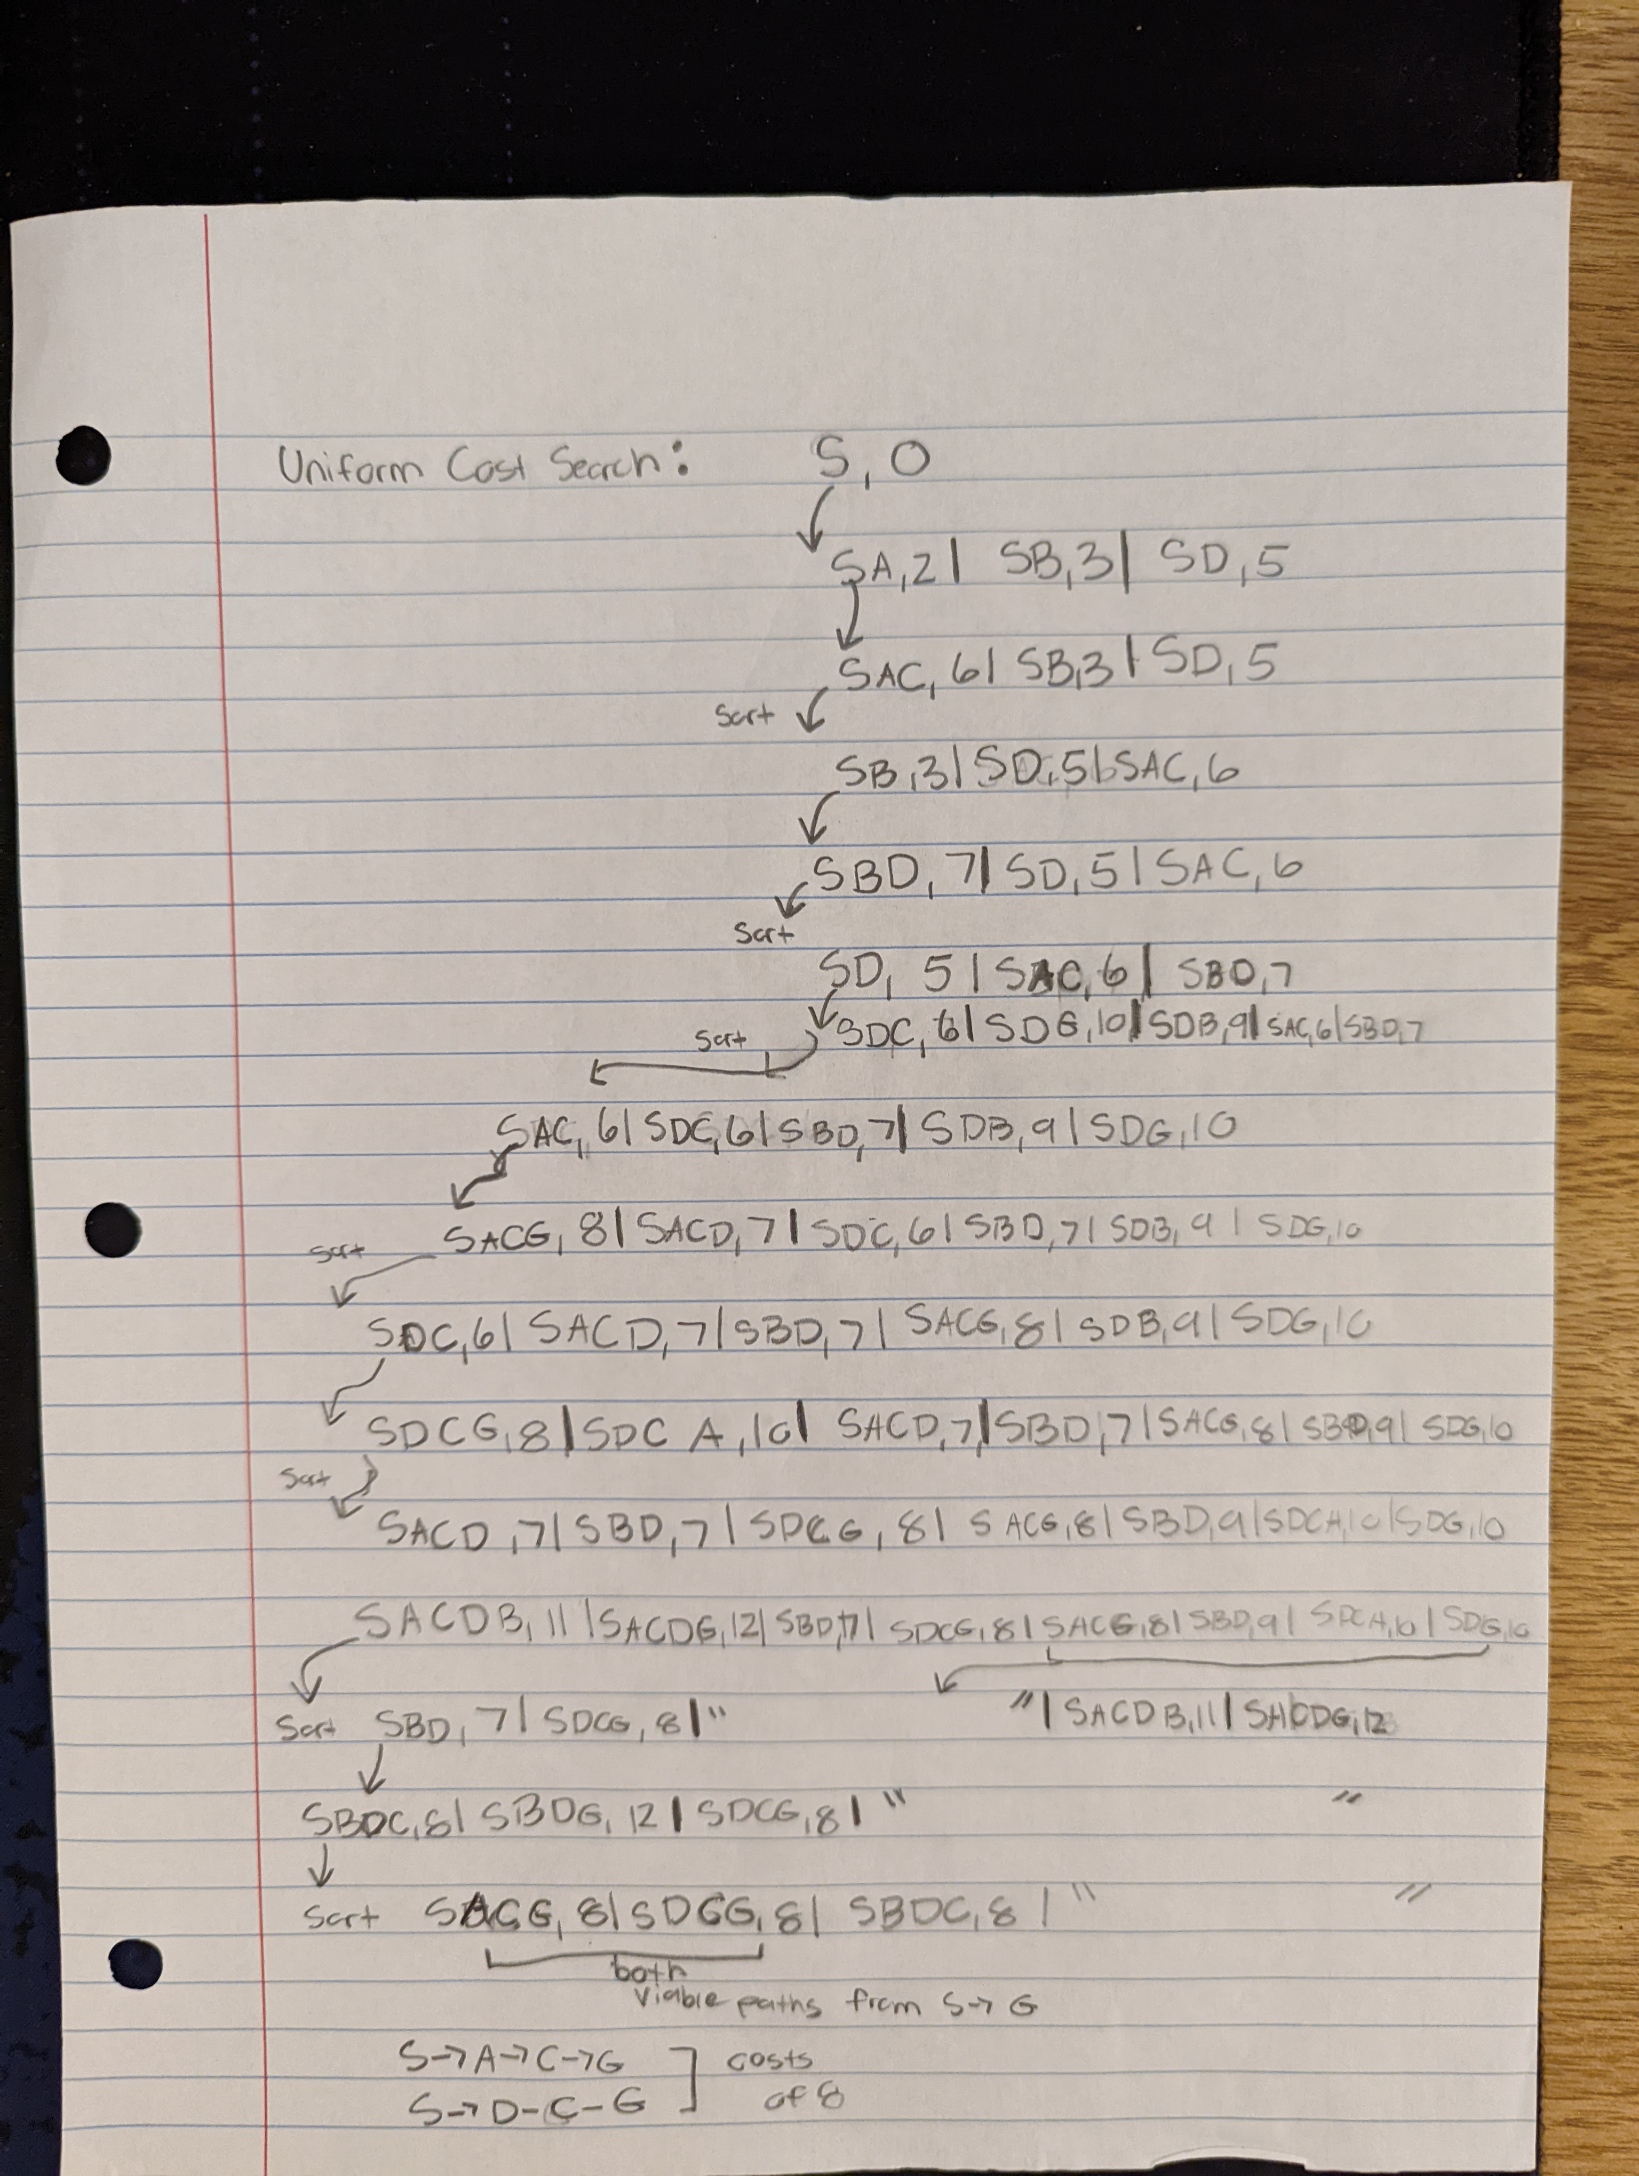 Uniform Cost Search: S, 0
SA, 2 | SB, 3 | SD, 5
SAC, 6 | SB, 3 | SD, 5
Sort
SB, 3 | SD, 5 | SAC, 6
SBD, 7 | SD, 5 | SAC, 6
Sort
SD, 5 | SAC, 6 | SBD, 7
Sort SDC, 6 | SDG, 10 | SDB, 9 | SAC, 6 | SBD, 7
SAC, 6 | SDC, 6 | SBD, 7 | SDB, 9 | SDG, 10
Sort SACG, 8 | SACD, 7 | SDC, 6 | SBD, 7 | SDB, 9 | SDG, 10
SDC, 6 | SACD, 7 | SBD, 7 | SACG, 8 | SDB, 9 | SDG, 10
SDCG, 8 | SDC A, 10 | SACD, 7 | SBD, 7 | SACG, 8 | SBD, 9 | SDG, 10
Sort
SACD, 7 | SBD, 7 | SDCG, 8 | SACG, 8 | SBD, 9 | SDCA, 10 | SDG, 10
SACDB, 11 | SACDG, 12 | SBD, 7 | SDCG, 8 | SACG, 8 | SBD, 9 | SDCA, 10 | SDG, 10
Sort SBD, 7 | SDCG, 8 | " " | SACDB, 11 | SACDG, 12
SBDC, 8 | SBDG, 12 | SDCG, 8 | " "
Sort SACG, 8 | SDCG, 8 | SBDC, 8 | " "
both
viable paths from S→G
S→A→C→G ] costs
S→D-C-G of 8